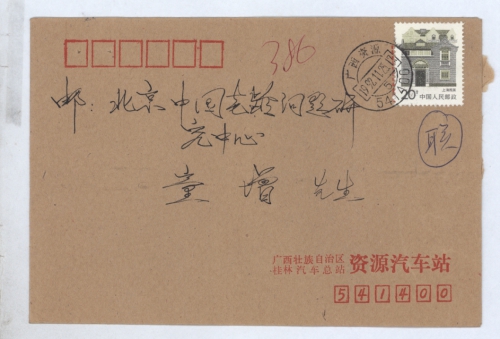 386
广西资源
1992.11.25
541400
上海民居
20分
中国人民邮政
邮：北京中国老龄问题研
究中心
童增 先生
联
广西壮族自治区
桂林汽车总站 资源汽车站
541400